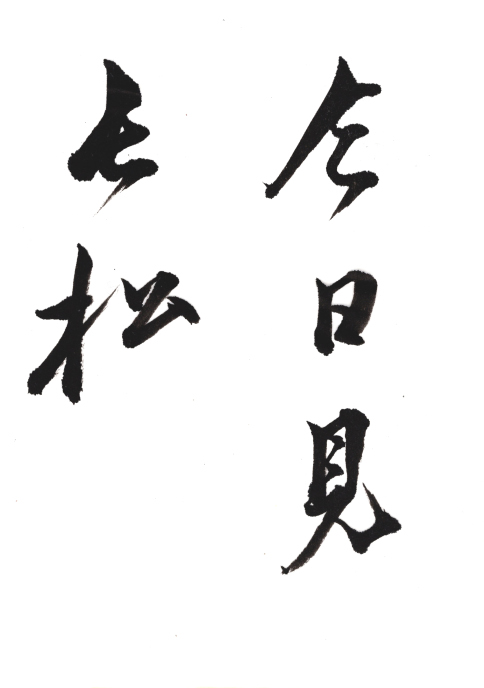 今日見
長松